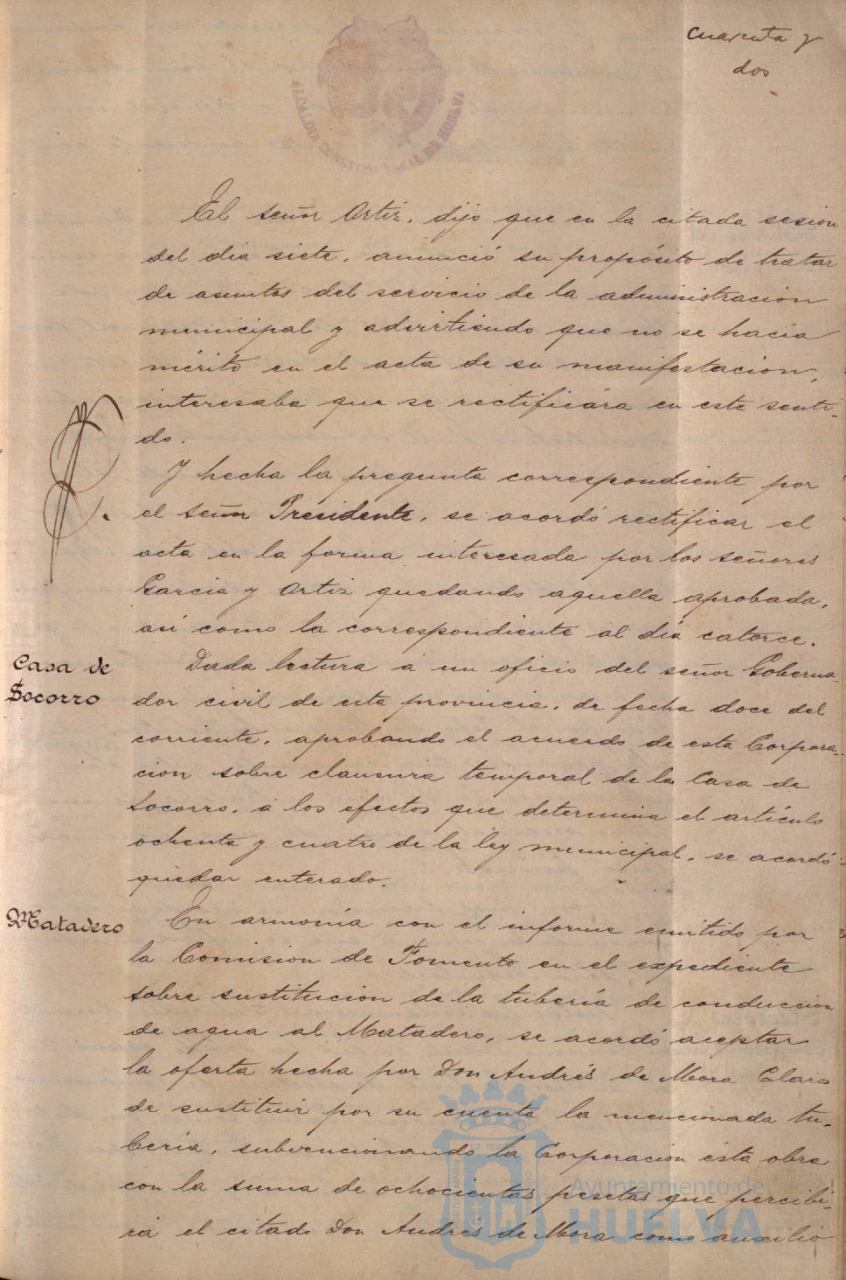 cuarenta y
dos
ALCALDIA CONSTITUCIONAL DE HUELVA
El señor Ortiz, dijo que en la citada sesion
del dia siete, anunció su propósito de tratar
de asuntos del servicio de la administracion
municipal y advirtiendo que no se hacia
mérito en el acta de su manifestacion,
interesaba que se rectificára en este senti-
do.
Y hecha la pregunta correspondiente por
el señor Presidente, se acordó rectificar el
acta en la forma interesada por los señores
Garcia y Ortiz quedando aquella aprobada,
así como la correspondiente al día catorce.
Casa de
Socorro
Dada lectura á un oficio del señor Goberna-
dor civil de esta provincia, de fecha doce del
corriente, aprobando el acuerdo de esta Corpora-
cion sobre clausura temporal de la Casa de
Socorro, á los efectos que determina el artículo
ochenta y cuatro de la ley municipal, se acordó
quedar enterado.
Matadero
En armonía con el informe emitido por
la Comision de Fomento en el expediente
sobre sustitucion de la tubería de conduccion
de agua al Matadero, se acordó aceptar
la oferta hecha por Don Andrés de Mora Claro
de sustituir por su cuenta la mencionada tu-
bería, subvencionando la Corporacion esta obra
con la suma de ochocientas pesetas que percibi-
rá el citado Don Andrés de Mora como auxilio
Ayuntamiento de
HUELVA